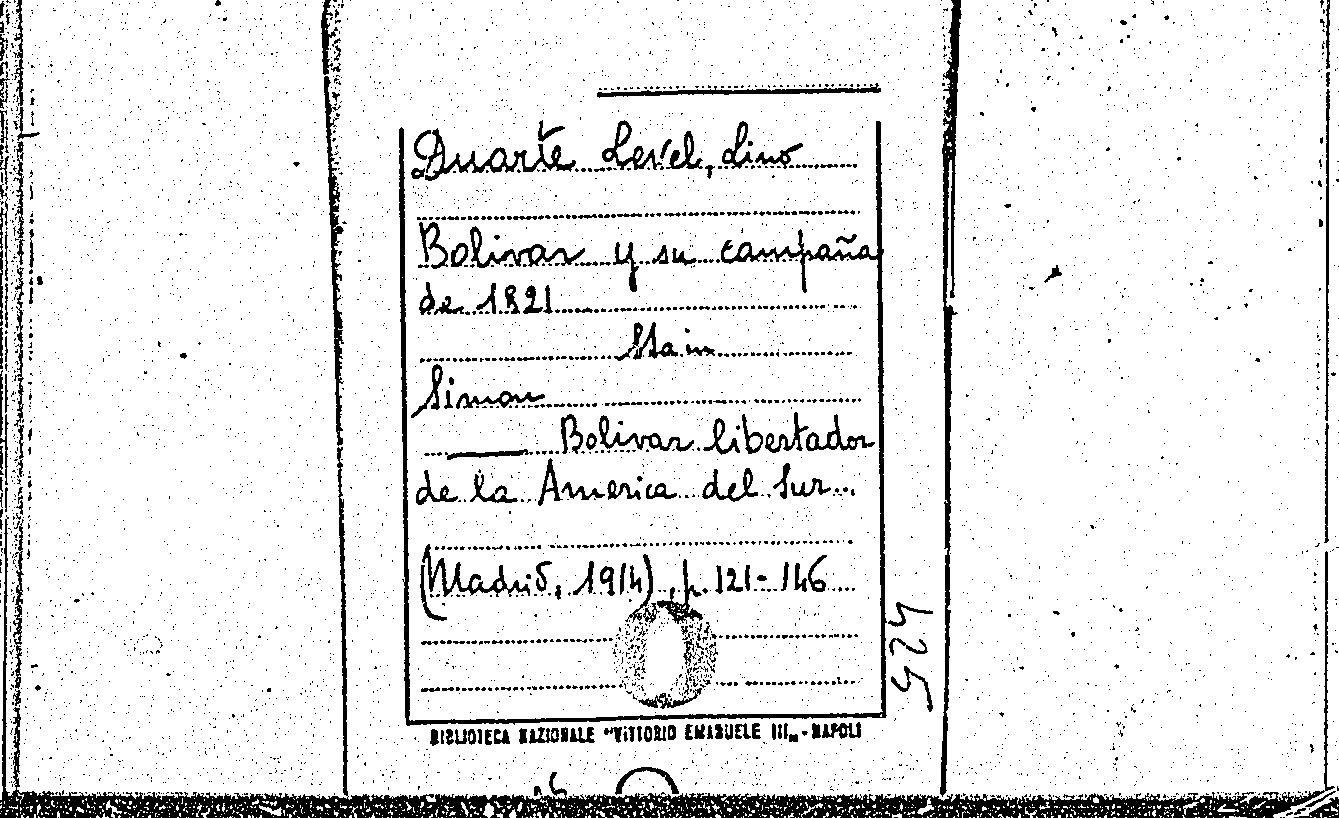 Duarte Level, Lino
Bolivar y su campaña
de 1821
Sta in
Simon
Bolivar libertador
de la America del Sur...
(Madrid, 1914), p. 121-146
BIBLIOTECA NAZIONALE "VITTORIO EMANUELE III„ - NAPOLI